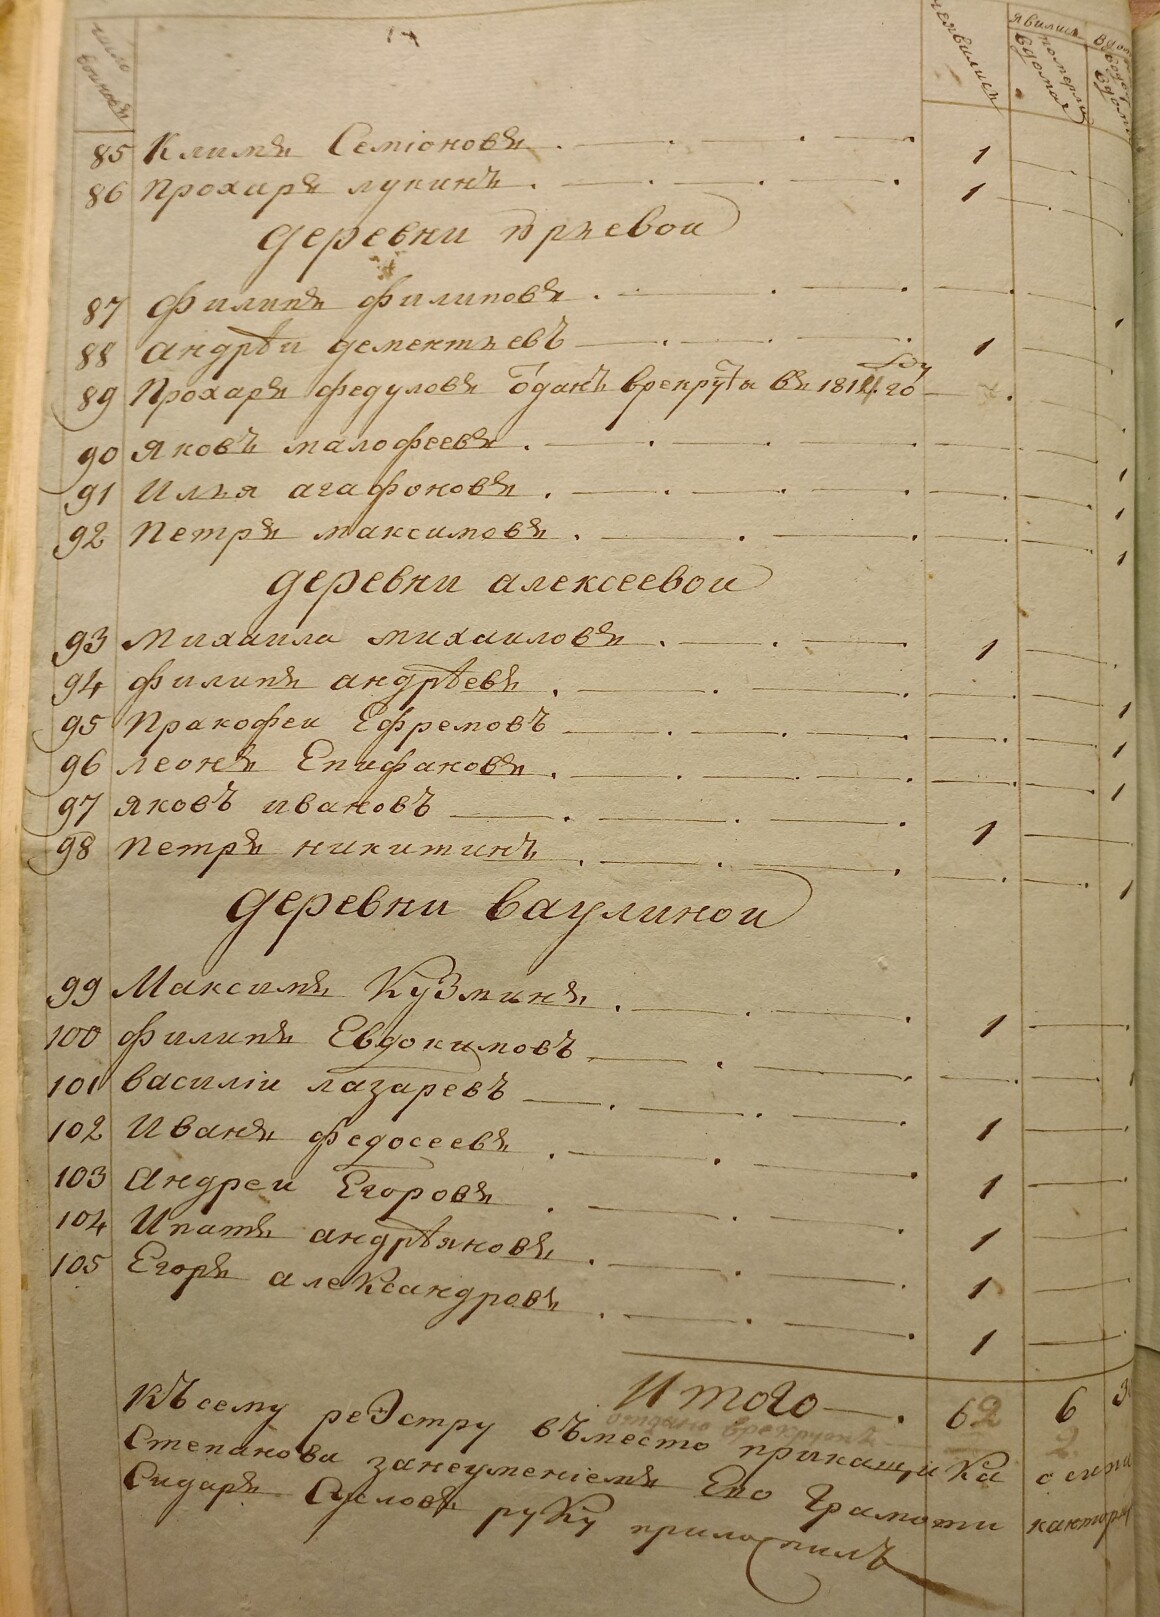 число
неявились
явились
померли
вдомах
85 Климъ Семіоновъ 1
86 Прохаръ лукинъ 1
деревни юрьевои
87 Филипъ Филиповъ 1
88 андрѣи дементьевъ 1
89 Прохаръ федуловъ ѿданъ врекруты въ 181 го
90 яковъ малофеевъ 1
91 Илья агафоновъ 1
92 Петръ максимовъ 1
деревни алексеевои
93 михаила михаиловъ 1
94 филипъ андрѣевъ 1
95 Пракофеи Ефремовъ 1
96 леонъ Епифановъ 1
97 яковъ ивановъ 1
98 Петръ никитинъ 1
деревни ваулинои
99 Максимъ Кузминъ 1
100 филипъ Евдокимовъ 1
101 василіи лазаревъ 1
102 Иванъ федосеевъ 1
103 андреи Егоровъ 1
104 Ипатъ андрѣяновъ 1
105 Егоръ александровъ 1
Итого 62 6 3
отдано врекруты 2
Къ сему реэстру въместо прикащика
Степанова занеуменіемъ Его Грамоти
Сидаръ Сусловъ руку приложилъ